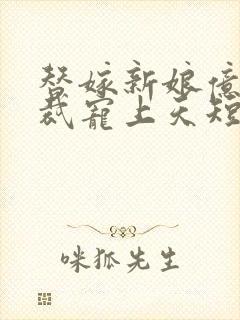 替嫁新娘億
裁寵上天短
咪狐先生